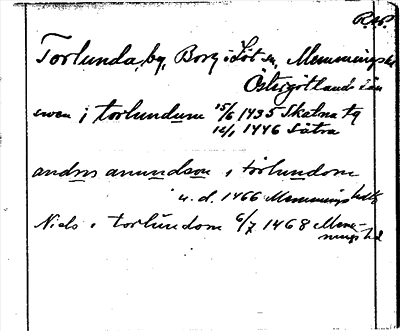 Torlunda, by, Borg i Löt sn, Memmings hd
Östergötlands län
swen j torlundum 15/6 1435 Skatna tg
12/1 1446 Sätra
andris anundson i torlundom
u. d. 1466 Memmings hdtg
Niels i torlundom 6/7 1468 Mem-
mings hd